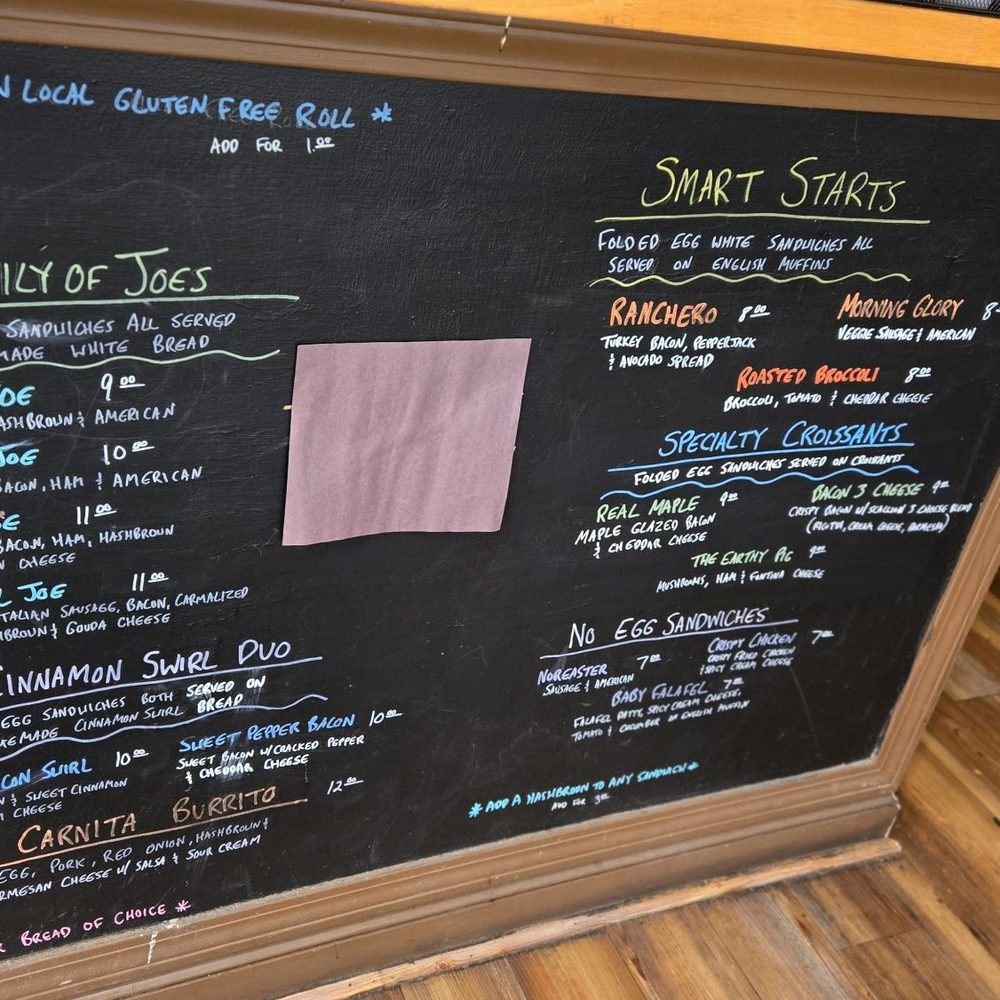 LOCAL GLUTEN FREE ROLL *
ADD FOR 1.00
ILY OF JOES
SANDWICHES ALL SERVED
MADE WHITE BREAD
OE 9.00
ASHBROWN & AMERICAN
JOE 10.00
BACON, HAM & AMERICAN
E 11.00
BACON, HAM, HASHBROWN
CHEESE
L JOE 11.00
ITALIAN SAUSAGE, BACON, CARMALIZED
HBROWN & GOUDA CHEESE
CINNAMON SWIRL DUO
EGG SANDWICHES BOTH SERVED ON
MADE CINNAMON SWIRL BREAD
CON SWIRL 10.00
& SWEET CINNAMON
CHEESE
SWEET PEPPER BACON 10.00
SWEET BACON W/ CRACKED PEPPER
& CHEDDAR CHEESE
CARNITA BURRITO 12.00
EGG, PORK, RED ONION, HASHBROWN &
RMESAN CHEESE W/ SALSA & SOUR CREAM
BREAD OF CHOICE *
SMART STARTS
FOLDED EGG WHITE SANDWICHES ALL
SERVED ON ENGLISH MUFFINS
RANCHERO 8.00
TURKEY BACON, PEPPERJACK
& AVOCADO SPREAD
MORNING GLORY 8
VEGGIE SAUSAGE & AMERICAN
ROASTED BROCCOLI 8.00
BROCCOLI, TOMATO & CHEDDAR CHEESE
SPECIALTY CROISSANTS
FOLDED EGG SANDWICHES SERVED ON CROISSANTS
REAL MAPLE 9.00
MAPLE GLAZED BACON
& CHEDDAR CHEESE
BACON 3 CHEESE 9.00
CRISPY BACON W/ SCALLION 3 CHEESE BLEND
(RICOTTA, CREAM CHEESE, PARMESAN)
THE EARTHY PIG 9.00
MUSHROOMS, HAM & FONTINA CHEESE
NO EGG SANDWICHES
NOREASTER 7.00
SAUSAGE & AMERICAN
CRISPY CHICKEN 7.00
CRISPY FRIED CHICKEN
& SPICY CREAM CHEESE
BABY FALAFEL 7.00
FALAFEL PATTY, SPICY CREAM CHEESE,
TOMATO & CUCUMBER ON ENGLISH MUFFIN
* ADD A HASHBROWN TO ANY SANDWICH *
ADD FOR 3.00